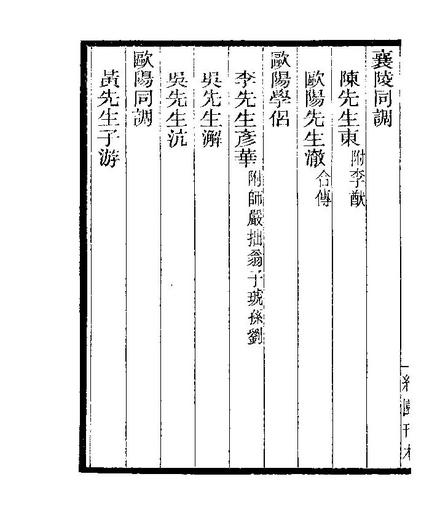 襄陵同調
陳先生東 附李猷
歐陽先生澈 合傳
歐陽學侶
李先生彥華 附師嚴拙翁子琥孫劉
吳先生澥
吳先生沆
歐陽同調
黃先生子游
約園刊本